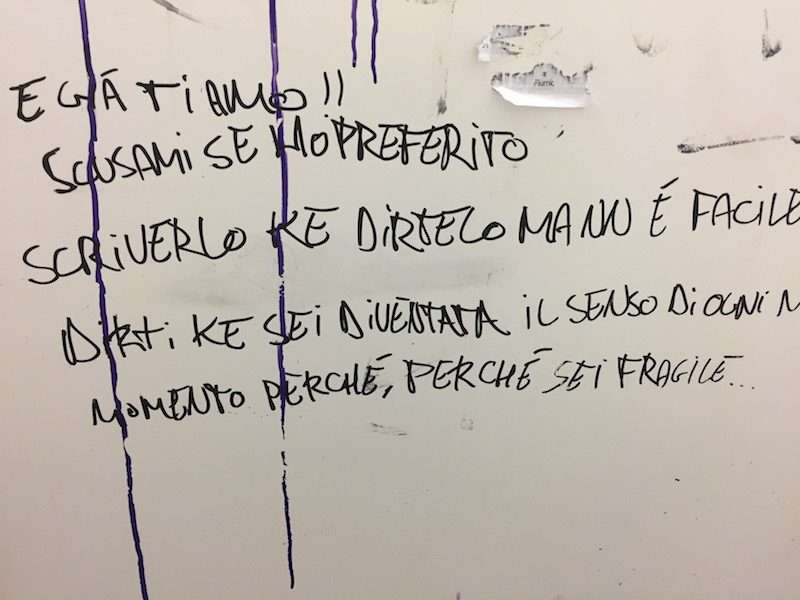 E GÁ TI AMO!!
SCUSAMI SE MO PREFERITO
SCRIVERLO KE DIRTELO MA NN É FACILE
DIRTI KE SEI DIVENTATA IL SENSO DI OGNI M
MOMENTO PERCHÉ, PERCHÉ SEI FRAGILE...